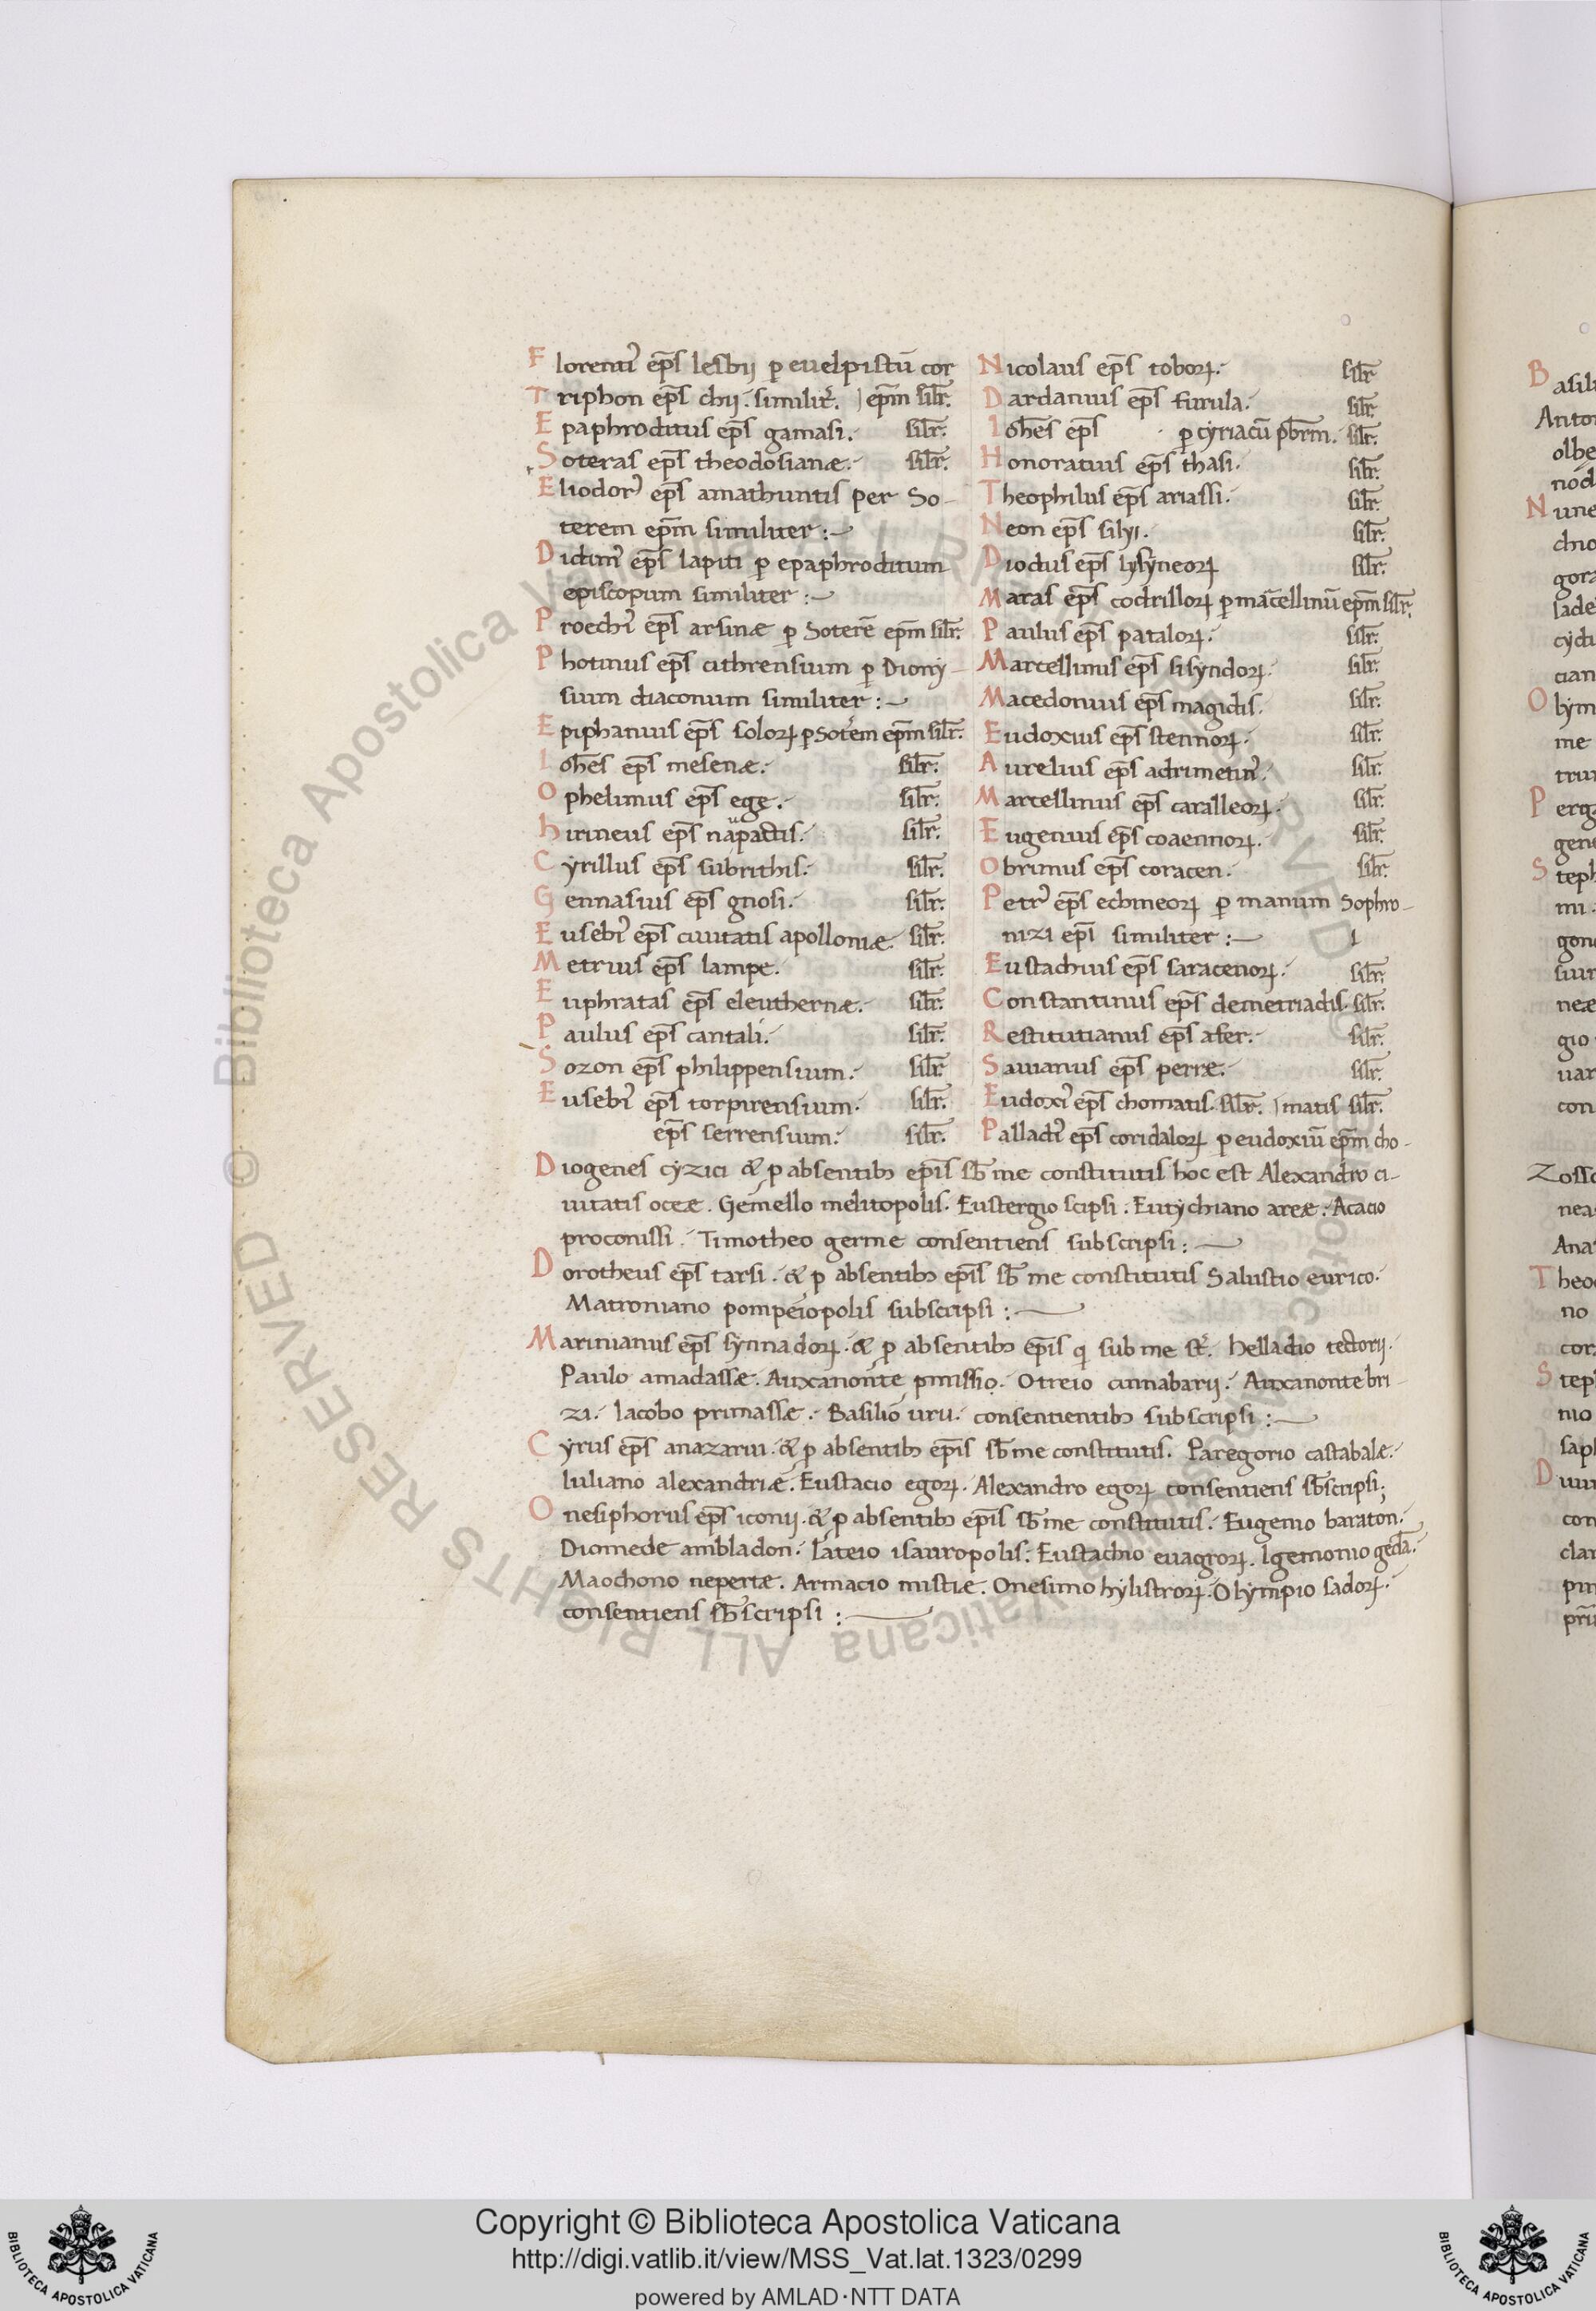 Florenti᾿ ep̄s lesbij ꝑ euelpistū cor
Triphon ep̄s chij. similit᾿. | ep̄m sil̄r.
Epaphroditus ep̄s gamasi. sil̄r.
Soteras ep̄s theodosianæ. sil̄r.
Eliodor᾿ ep̄s amathuntis per So-
terem ep̄m similiter :~
Didim᾿ ep̄s lapiti ꝑ epaphroditum
episcopum similiter :~
Proechi᾿ ep̄s arsinæ ꝑ Soterē ep̄m sil̄r.
Photinus ep̄s cithrensium ꝑ Diony-
sium diaconum similiter :~
Epiphanius ep̄s soloꝝ ꝑ Soterem ep̄m sil̄r.
Ioh̄es ep̄s mesenæ. sil̄r.
Ophelimus ep̄s ege. sil̄r.
hirineus ep̄s naupactis. sil̄r.
Cyrillus ep̄s subrithis. sil̄r.
Gennasius ep̄s gnosi. sil̄r.
Eusebi᾿ ep̄s ciuitatis apolloniæ. sil̄r.
Metrius ep̄s lampe. sil̄r.
Euphratas ep̄s eleuthernæ. sil̄r.
Paulus ep̄s cantali. sil̄r.
Sozon ep̄s philippensium. sil̄r
Eusebi᾿ ep̄s torpirensium. sil̄r.
ep̄s serrensium. sil̄r.
Nicolaus ep̄s toboꝝ. sil̄r
Dardanius ep̄s furula. sil̄r.
Ioh̄es ep̄s ꝑ cyriacū pb̄rm. sil̄r.
Honoratius ep̄s thasi. sil̄r.
Theophilus ep̄s ariassi. sil̄r.
Neon ep̄s silyi. sil̄r.
Diodus ep̄s lysyneoꝝ sil̄r.
Maras ep̄s codrilloꝝ ꝑ marcellinū ep̄m sil̄r.
Paulus ep̄s pataloꝝ. sil̄r.
Marcellinus ep̄s sisyndoꝝ. sil̄r.
Macedonius ep̄s magidis. sil̄r.
Eudoxius ep̄s stennoꝝ. sil̄r.
Aurelius ep̄s adrimetin᾿. sil̄r.
Marcellinus ep̄s caralleoꝝ. sil̄r.
Eugenius ep̄s coaennoꝝ. sil̄r.
Obrimus ep̄s coracen. sil̄r.
Petr᾿ ep̄s echineoꝝ ꝑ manum Sophro-
nizi ep̄i similiter :~
Eustachius ep̄s saracenoꝝ. sil̄r.
Constantinus ep̄s demetriadis. sil̄r.
Restitutianus ep̄s afer. sil̄r.
Sauianus ep̄s perræ. sil̄r.
Eudoxi᾿ ep̄s chomatis. sil̄r. | matis sil̄r.
Palladi᾿ ep̄s coridaloꝝ ꝑ eudoxiū ep̄m cho-
Diogenes cyzici & ꝑ absentibꝫ ep̄is sb̄ me constitutis hoc est Alexandro ci-
uitatis oceæ. Gemello melitopolis. Eustergio scipsi. Eutychiano areæ. Acacio
proconissi. Timotheo germe consentiens subscripsi :~
Dorotheus ep̄s tarsi. & ꝑ absentibꝫ ep̄is sb̄ me constitutis Salustio eurico.
Matroniano pompeiopolis subscripsi :~
Marinianus ep̄s synnadoꝝ. & ꝑ absentibꝫ ep̄is q̄ sub me st̄. helladio tectorij.
Paulo amadassæ. Auxanonte pmissio. Otreio cinnabarij. Auxanonte bri-
zi. Iacobo primassæ. Basilio uru. consentientibꝫ subscripsi :~
Cyrus ep̄s anazarui. & ꝑ absentibꝫ ep̄is sb̄ me constitutis. Paregorio castabalæ.
Iuliano alexandriæ. Eustacio egoꝝ. Alexandro egoꝝ consentiens sb̄scripsi;
Onesiphorus ep̄s iconij. & ꝑ absentibꝫ ep̄is sb̄ me constitutis. Eugenio baraton.
Diomede ambladon. Lateio isauropolis. Eustachio euagroꝝ. Igemonio gedā.
Maochono nepertæ. Armacio mistiæ. Onesimo hylistroꝝ. Olympio sadoꝝ.
consentiens sb̄scripsi :~
© Biblioteca Apostolica Vaticana ALL RIGHTS RESERVED
Copyright © Biblioteca Apostolica Vaticana
http://digi.vatlib.it/view/MSS_Vat.lat.1323/0299
powered by AMLAD·NTT DATA
BIBLIOTECA APOSTOLICA VATICANA
BIBLIOTECA APOSTOLICA VATICANA